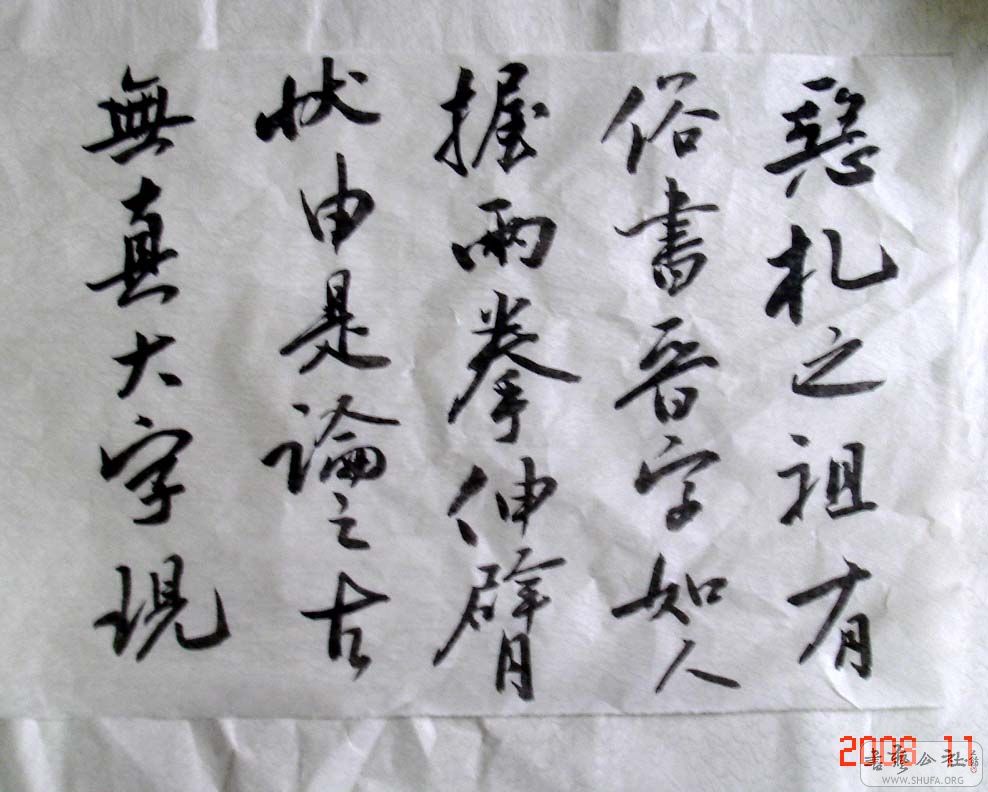 惡札之祖有
俗書普字如人
握兩拳伸臂
狀由是論之古
無真大字現
書藝公社
WWW.SHUFA.ORG